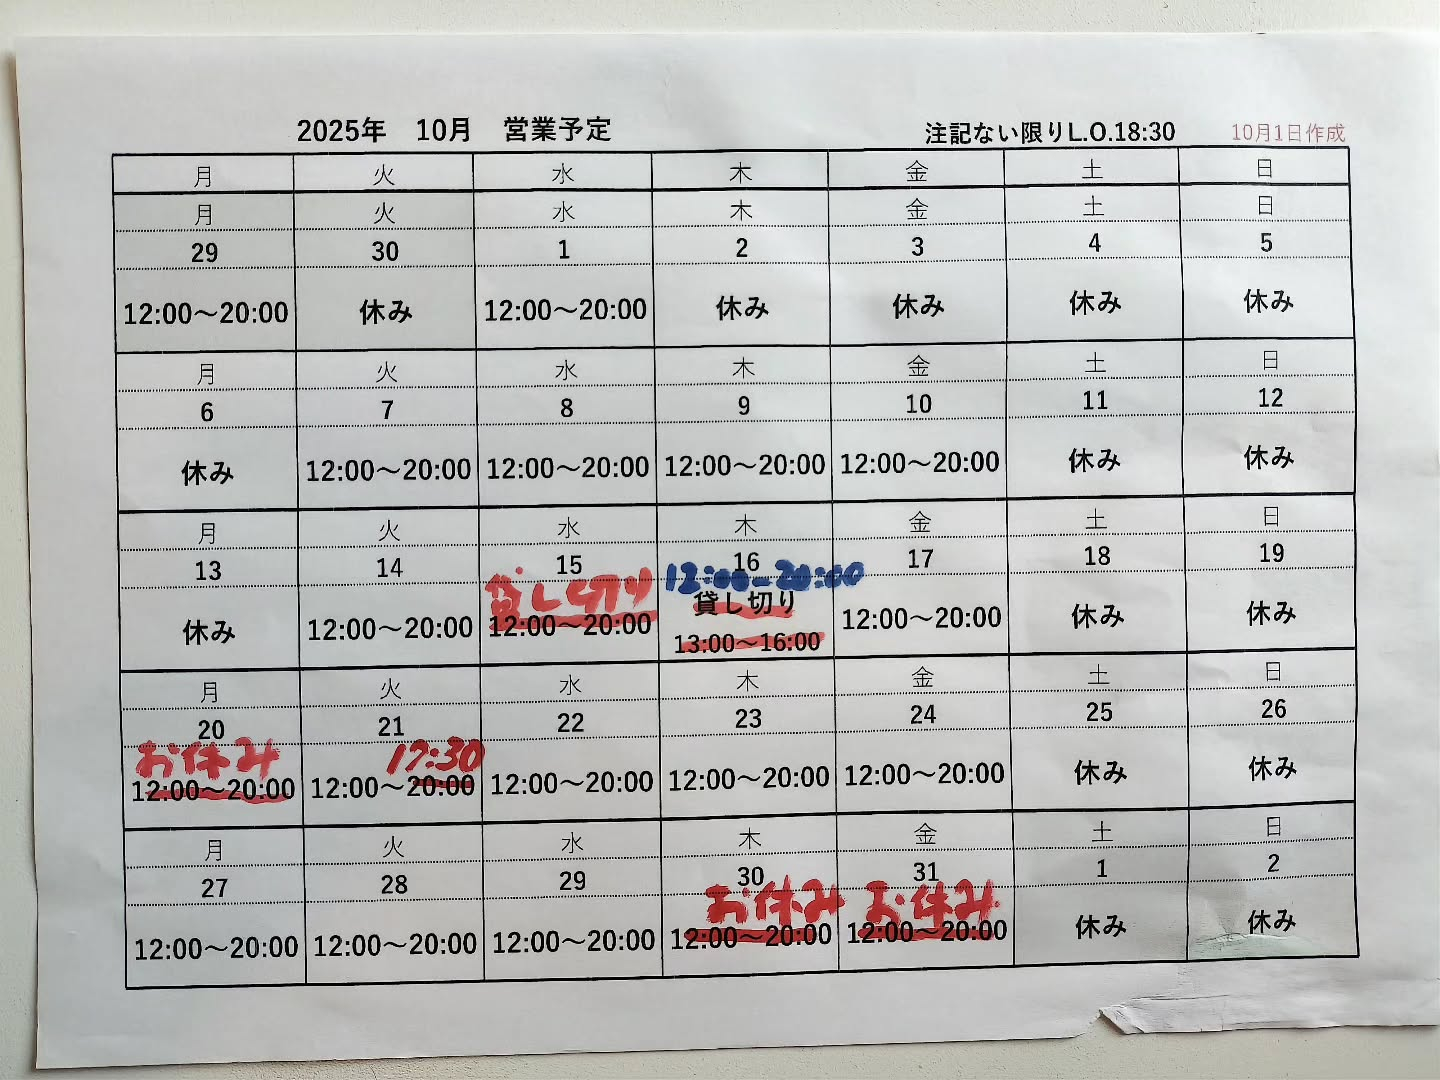 2025年 10月 営業予定 注記ない限りL.O.18:30 10月1日作成
月 火 水 木 金 土 日
月 火 水 木 金 土 日
29 30 1 2 3 4 5
12:00～20:00 休み 12:00～20:00 休み 休み 休み 休み
月 火 水 木 金 土 日
6 7 8 9 10 11 12
休み 12:00～20:00 12:00～20:00 12:00～20:00 12:00～20:00 休み 休み
月 火 水 木 金 土 日
13 14 15 16 17 18 19
貸し切り 12:00-20:00
貸し切り
休み 12:00～20:00 12:00～20:00 13:00～16:00 12:00～20:00 休み 休み
月 火 水 木 金 土 日
20 21 22 23 24 25 26
お休み 17:30
12:00～20:00 12:00～20:00 12:00～20:00 12:00～20:00 12:00～20:00 休み 休み
月 火 水 木 金 土 日
27 28 29 30 31 1 2
お休み お休み
12:00～20:00 12:00～20:00 12:00～20:00 12:00～20:00 12:00～20:00 休み 休み